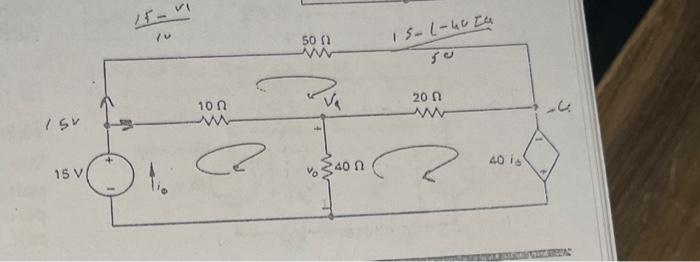 15 - V1
10
50 Ω
15 - (-40 I
50
10 Ω
Va
20 Ω
15V
+
-
+
15 V
-
i₀
+
V₀
40 Ω
-
40 i₀
+